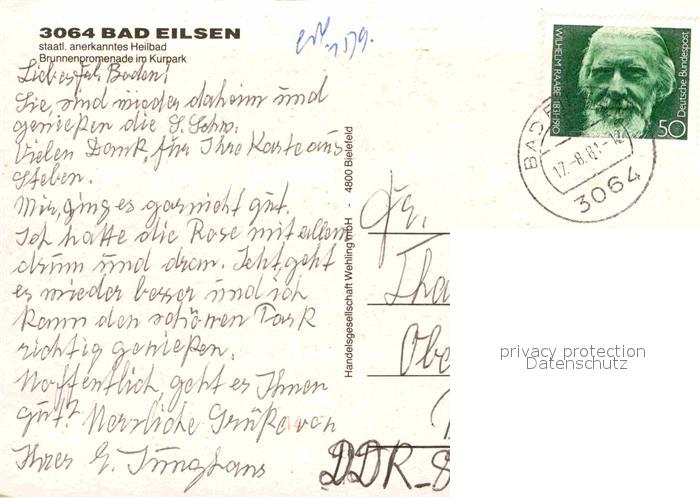 3064 BAD EILSEN
staatl. anerkanntes Heilbad
Brunnenpromenade im Kurpark
Liebes Frl. Baden!
Sie sind wieder daheim und
genießen die S. Schw.
Vielen Dank für Ihre Karte aus
Steben.
Mir ging es gar nicht gut.
Ich hatte die Rose mit allem
drum und dran. Jetzt geht
es wieder besser und ich
kann den schönen Park
richtig genießen.
Hoffentlich geht es Ihnen
gut? Herzliche Grüße von
Ihrer E. Junghans
Handelsgesellschaft Wehling mbH - 4800 Bielefeld
WILHELM RAABE 1831-1910
Deutsche Bundespost
50
BAD
17.-8.81-12
3064
Fr.
Tha
Obe
DDR-8
privacy protection
Datenschutz